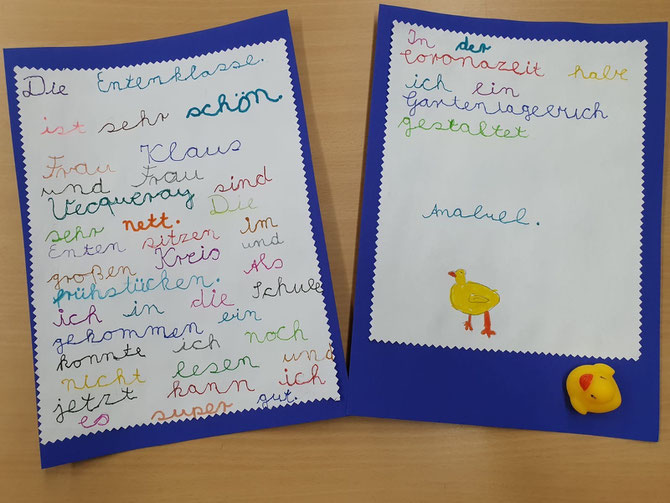 Die Entenklasse.
ist sehr schön.
Frau Klaus
und Frau
Vecqueray sind
sehr nett. Die
Enten sitzen im
großen Kreis und
frühstücken. Als
ich in die Schule
gekommen ein
konnte ich noch
nicht lesen und
jetzt kann ich
es super gut.
In der
Coronazeit habe
ich ein
Gartentagebuch
gestaltet
Anabel.